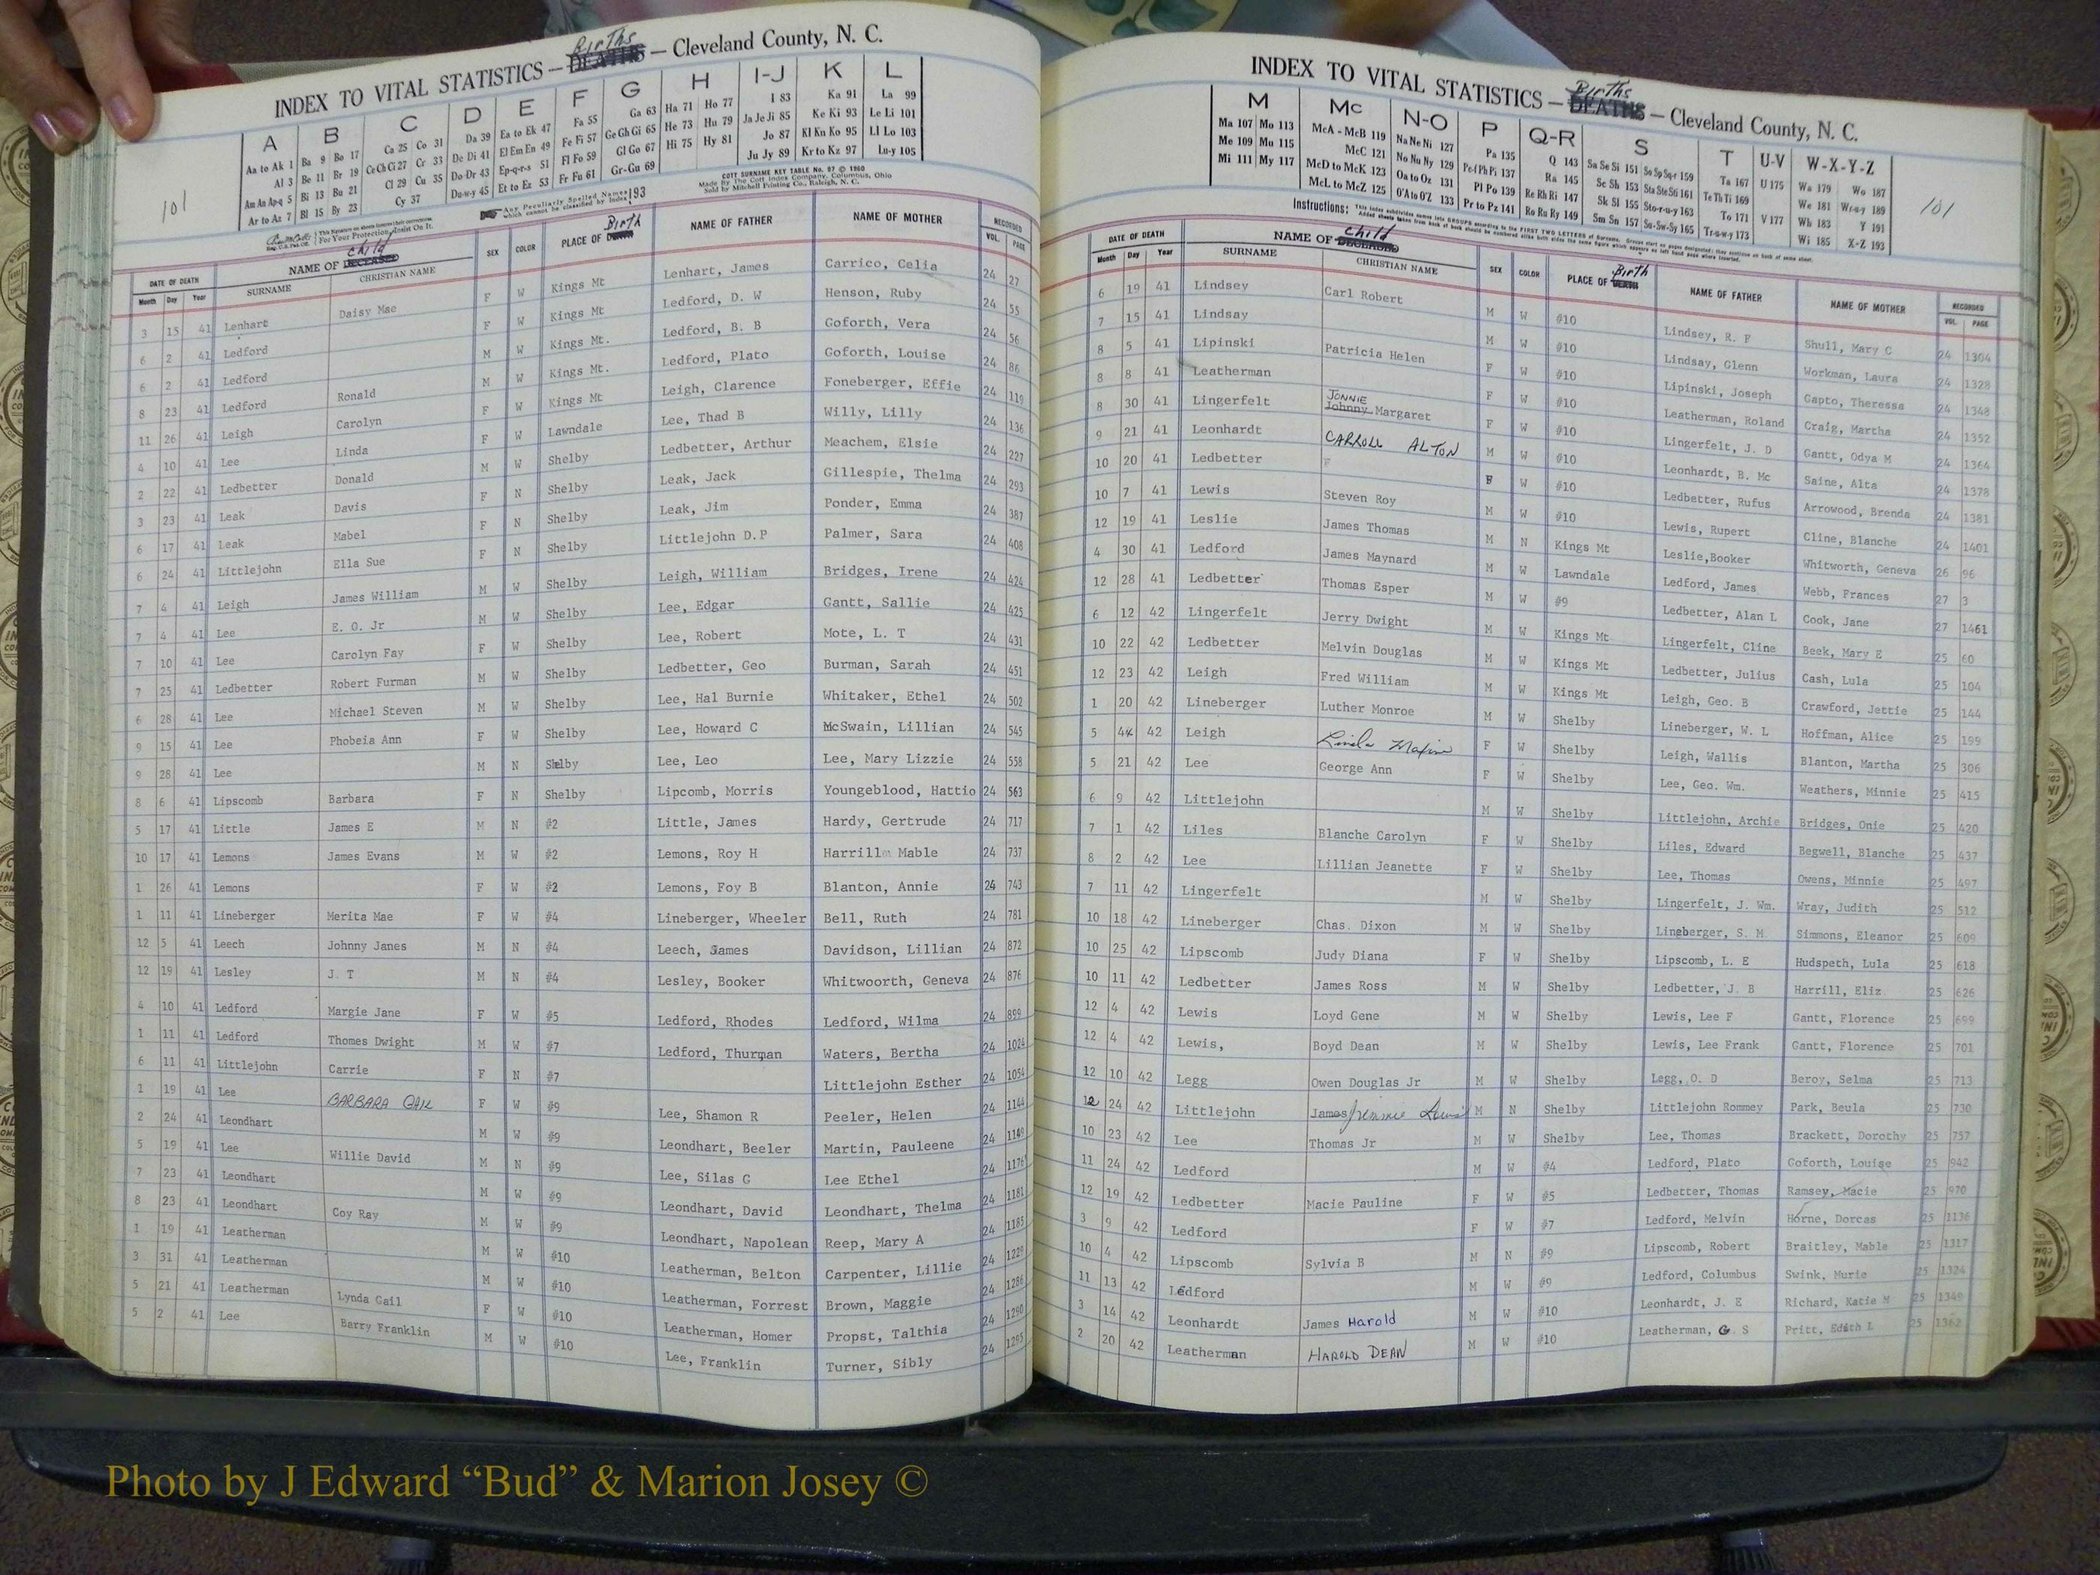 Births
INDEX TO VITAL STATISTICS — DEATHS — Cleveland County, N. C.
A B C D E F G H I-J K L
Aa to Ak 1 Ba 9 Bo 17 Ca 25 Co 31 Da 39 Ea to Ek 47 Fa 55 Ga 63 Ha 71 Ho 77 I 83 Ka 91 La 99
Al 3 Be 11 Br 19 Ce Ch Ci 27 Cr 33 De Di 41 El Em En 49 Fe Fi 57 Ge Gh Gi 65 He 73 Hu 79 Ja Je Ji 85 Ke Ki 93 Le Li 101
Am An Ap-q 5 Bi 13 Bu 21 Cl 29 Cu 35 Do-Dr 43 Ep-q-r-s 51 Fl Fo 59 Gl Go 67 Hi 75 Hy 81 Jo 87 Kl Kn Ko 95 Ll Lo 103
Ar to Az 7 Bl 15 By 23 Cy 37 Du-w-y 45 Et to Ez 53 Fr Fu 61 Gr-Gu 69 Ju Jy 89 Kr to Kz 97 Lu-y 105
101
Any Peculiarly Spelled Names which cannot be classified by Index 193
COTT SURNAME KEY TABLE No. 97 © 1960
Made by The Cott Index Company, Columbus, Ohio
Sold by Mitchell Printing Co., Raleigh, N. C.
This Signature on sheets insures their correctness.
For Your Protection, Insist On It.
DATE OF DEATH NAME OF DECEASED child SEX COLOR PLACE OF DEATH Birth NAME OF FATHER NAME OF MOTHER RECORDED
Month Day Year SURNAME CHRISTIAN NAME VOL. PAGE
3 15 41 Lenhart Daisy Mae F W Kings Mt Lenhart, James Carrico, Celia 24 27
6 2 41 Ledford F W Kings Mt Ledford, D. W Henson, Ruby 24 55
6 2 41 Ledford M W Kings Mt. Ledford, B. B Goforth, Vera 24 56
8 23 41 Ledford Ronald M W Kings Mt. Ledford, Plato Goforth, Louise 24 86
11 26 41 Leigh Carolyn F W Kings Mt Leigh, Clarence Foneberger, Effie 24 119
4 10 41 Lee Linda F W Lawndale Lee, Thad B Willy, Lilly 24 136
2 22 41 Ledbetter Donald M W Shelby Ledbetter, Arthur Meachem, Elsie 24 227
3 23 41 Leak Davis F N Shelby Leak, Jack Gillespie, Thelma 24 293
6 17 41 Leak Mabel F N Shelby Leak, Jim Ponder, Emma 24 387
6 24 41 Littlejohn Ella Sue F N Shelby Littlejohn D.P Palmer, Sara 24 408
7 4 41 Leigh James William M W Shelby Leigh, William Bridges, Irene 24 424
7 4 41 Lee E. G. Jr M W Shelby Lee, Edgar Gantt, Sallie 24 425
7 10 41 Lee Carolyn Fay F W Shelby Lee, Robert Mote, L. T 24 431
7 25 41 Ledbetter Robert Furman M W Shelby Ledbetter, Geo Burman, Sarah 24 451
6 28 41 Lee Michael Steven M W Shelby Lee, Hal Burnie Whitaker, Ethel 24 502
9 15 41 Lee Phobeia Ann F W Shelby Lee, Howard C McSwain, Lillian 24 545
9 28 41 Lee M N Shelby Lee, Leo Lee, Mary Lizzie 24 558
8 6 41 Lipscomb Barbara F N Shelby Lipcomb, Morris Youngeblood, Hattio 24 563
5 17 41 Little James E M N #2 Little, James Hardy, Gertrude 24 717
10 17 41 Lemons James Evans M W #2 Lemons, Roy H Harrill Mable 24 737
1 26 41 Lemons F W #2 Lemons, Foy B Blanton, Annie 24 743
1 11 41 Lineberger Merita Mae F W #4 Lineberger, Wheeler Bell, Ruth 24 781
12 5 41 Leech Johnny Janes M N #4 Leech, James Davidson, Lillian 24 872
12 19 41 Lesley J. T M N #4 Lesley, Booker Whitwoorth, Geneva 24 876
4 10 41 Ledford Margie Jane F W #5 Ledford, Rhodes Ledford, Wilma 24 899
1 11 41 Ledford Thomes Dwight M W #7 Ledford, Thurman Waters, Bertha 24 1024
6 11 41 Littlejohn Carrie F N #7 Littlejohn Esther 24 1054
1 19 41 Lee BARBARA GAIL F W #9 Lee, Shamon R Peeler, Helen 24 1144
2 24 41 Leondhart M W #9 Leondhart, Beeler Martin, Pauleene 24 1149
5 19 41 Lee Willie David M N #9 Lee, Silas G Lee Ethel 24 1176
7 23 41 Leondhart M W #9 Leondhart, David Leondhart, Thelma 24 1181
8 23 41 Leondhart Coy Ray M W #9 Leondhart, Napolean Reep, Mary A 24 1185
1 19 41 Leatherman M W #10 Leatherman, Belton Carpenter, Lillie 24 1229
3 31 41 Leatherman M W #10 Leatherman, Forrest Brown, Maggie 24 1286
5 21 41 Leatherman Lynda Gail F W #10 Leatherman, Homer Propst, Talthia 24 1290
5 2 41 Lee Barry Franklin M W #10 Lee, Franklin Turner, Sibly 24 1295
Births
INDEX TO VITAL STATISTICS — DEATHS — Cleveland County, N. C.
M Mc N-O P Q-R S T U-V W-X-Y-Z
Ma 107 Mo 113 McA - McB 119 Na Ne Ni 127 Pa 135 Q 143 Sa Se Si 151 So Sp Sq-r 159 Ta 167 U 175 Wa 179 Wo 187
Me 109 Mu 115 McC 121 No Nu Ny 129 Pe-f Ph Pi 137 Ra 145 Sc Sh 153 Sta Ste Sti 161 Te Th Ti 169 We 181 Wr-u-y 189
Mi 111 My 117 McD to McK 123 Oa to Oz 131 Pl Po 139 Re Rh Ri 147 Sk Sl 155 Sto-r-u-y 163 To 171 V 177 Wh 183 Y 191
McL to McZ 125 O'A to O'Z 133 Pr to Pz 141 Ro Ru Ry 149 Sm Sn 157 Su-Sw-Sy 165 Tr-u-w-y 173 Wi 185 X-Z 193
101
Instructions: This index subdivides names into GROUPS according to the FIRST TWO LETTERS of Surname.
DATE OF DEATH NAME OF DECEASED child SEX COLOR PLACE OF DEATH Birth NAME OF FATHER NAME OF MOTHER RECORDED
Month Day Year SURNAME CHRISTIAN NAME VOL. PAGE
6 19 41 Lindsey Carl Robert M W #10 Lindsey, R. F Shull, Mary C 24 1304
7 15 41 Lindsay M W #10 Lindsay, Glenn Workman, Laura 24 1328
8 5 41 Lipinski Patricia Helen F W #10 Lipinski, Joseph Gapto, Theressa 24 1348
8 8 41 Leatherman F W #10 Leatherman, Roland Craig, Martha 24 1352
8 30 41 Lingerfelt JONNIE Johnny Margaret F W #10 Lingerfelt, J. D Gantt, Odya M 24 1364
9 21 41 Leonhardt CARROLL ALTON M W #10 Leonhardt, B. Mc Saine, Alta 24 1378
10 20 41 Ledbetter F F W #10 Ledbetter, Rufus Arrowood, Brenda 24 1381
10 7 41 Lewis Steven Roy M W #10 Lewis, Rupert Cline, Blanche 24 1401
12 19 41 Leslie James Thomas M N Kings Mt Leslie,Booker Whitworth, Geneva 26 96
4 30 41 Ledford James Maynard M W Lawndale Ledford, James Webb, Frances 27 3
12 28 41 Ledbetter Thomas Esper M W #9 Ledbetter, Alan L Cook, Jane 27 1461
6 12 42 Lingerfelt Jerry Dwight M W Kings Mt Lingerfelt, Cline Beek, Mary E 25 60
10 22 42 Ledbetter Melvin Douglas M W Kings Mt Ledbetter, Julius Cash, Lula 25 104
12 23 42 Leigh Fred William M W Kings Mt Leigh, Geo. B Crawford, Jettie 25 144
1 20 42 Lineberger Luther Monroe M W Shelby Lineberger, W. L Hoffman, Alice 25 199
5 4 42 Leigh Linda Maxine F W Shelby Leigh, Wallis Blanton, Martha 25 306
5 21 42 Lee George Ann F W Shelby Lee, Geo. Wm. Weathers, Minnie 25 415
6 9 42 Littlejohn M W Shelby Littlejohn, Archie Bridges, Onie 25 420
7 1 42 Liles Blanche Carolyn F W Shelby Liles, Edward Begwell, Blanche 25 437
8 2 42 Lee Lillian Jeanette F W Shelby Lee, Thomas Owens, Minnie 25 497
7 11 42 Lingerfelt M W Shelby Lingerfelt, J. Wm. Wray, Judith 25 512
10 18 42 Lineberger Chas. Dixon M W Shelby Lineberger, S. M Simmons, Eleanor 25 609
10 25 42 Lipscomb Judy Diana F W Shelby Lipscomb, L. E Hudspeth, Lula 25 618
10 11 42 Ledbetter James Ross M W Shelby Ledbetter, J. B Harrill, Eliz 25 626
12 4 42 Lewis Loyd Gene M W Shelby Lewis, Lee F Gantt, Florence 25 699
12 4 42 Lewis, Boyd Dean M W Shelby Lewis, Lee Frank Gantt, Florence 25 701
12 10 42 Legg Owen Douglas Jr M W Shelby Legg, O. D Beroy, Selma 25 713
12 24 42 Littlejohn James Jimmie Lewis M N Shelby Littlejohn Rommey Park, Beula 25 730
10 23 42 Lee Thomas Jr M W Shelby Lee, Thomas Brackett, Dorothy 25 757
11 24 42 Ledford M W #4 Ledford, Plato Goforth, Louise 25 942
12 19 42 Ledbetter Macie Pauline F W #5 Ledbetter, Thomas Ramsey, Macie 25 970
3 9 42 Ledford F W #7 Ledford, Melvin Horne, Dorcas 25 1136
10 4 42 Lipscomb Sylvia B M N #9 Lipscomb, Robert Braitley, Mable 25 1317
11 13 42 Ledford M W #9 Ledford, Columbus Swink, Murie 25 1324
3 14 42 Leonhardt James Harold M W #10 Leonhardt, J. E Richard, Katie M 25 1349
2 20 42 Leatherman HAROLD DEAN M W #10 Leatherman, G. S Pritt, Edith L 25 1362
Photo by J Edward “Bud” & Marion Josey ©